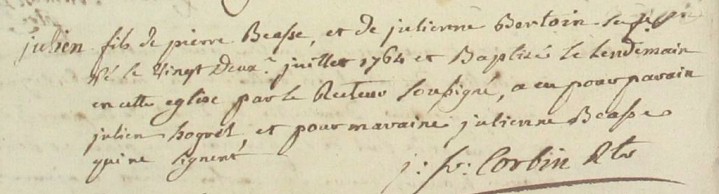 julien fils de pierre Beasse, et de julienne Bertoin sa
Né le vingt Deux.e juillet 1764 et Baptisé le lendemain
en cette eglise par le Recteur Soussigné, a eu pour parain
julien hoguet, et pour maraine julienne Beasse
qui ne signent
j: fr: Corbin Rtr